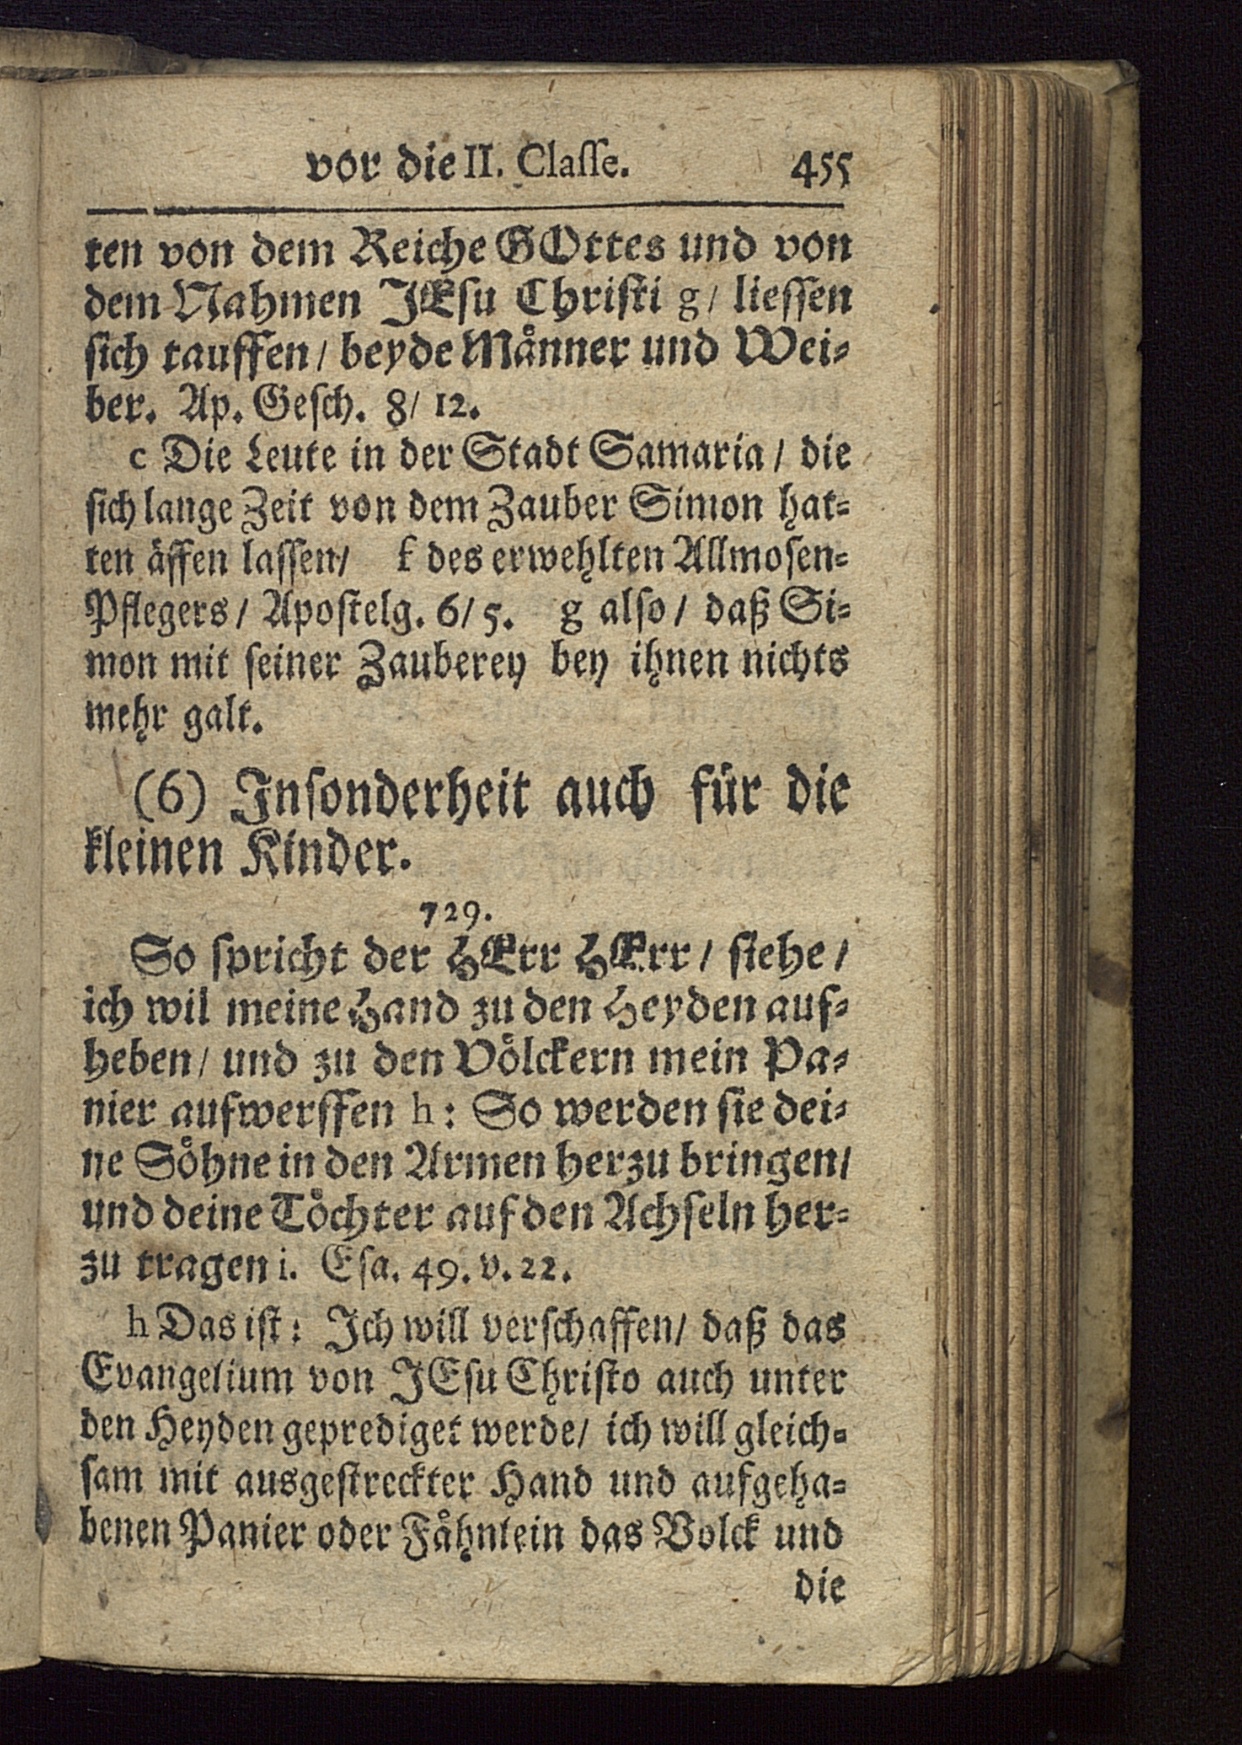 vor die II. Classe. 455
ten von dem Reiche GOttes und von
dem Nahmen JEsu Christi g/ liessen
sich tauffen/ beyde Männer und Wei-
ber. Ap. Gesch. 8/ 12.
c Die Leute in der Stadt Samaria/ die
sich lange Zeit von dem Zauber Simon hat-
ten äffen lassen/ f des erwehlten Allmosen-
Pflegers/ Apostelg. 6/ 5. g also/ daß Si-
mon mit seiner Zauberey bey ihnen nichts
mehr galt.
(6) Insonderheit auch für die
kleinen Kinder.
729.
So spricht der HErr HErr/ siehe/
ich wil meine Hand zu den Heyden auf-
heben/ und zu den Völckern mein Pa-
nier aufwerffen h: So werden sie dei-
ne Söhne in den Armen herzu bringen/
und deine Töchter auf den Achseln her-
zu tragen i. Esa. 49. v. 22.
h Das ist: Ich will verschaffen/ daß das
Evangelium von JEsu Christo auch unter
den Heyden geprediget werde/ ich will gleich-
sam mit ausgestreckter Hand und aufgeha-
benen Panier oder Fähnlein das Volck und
die